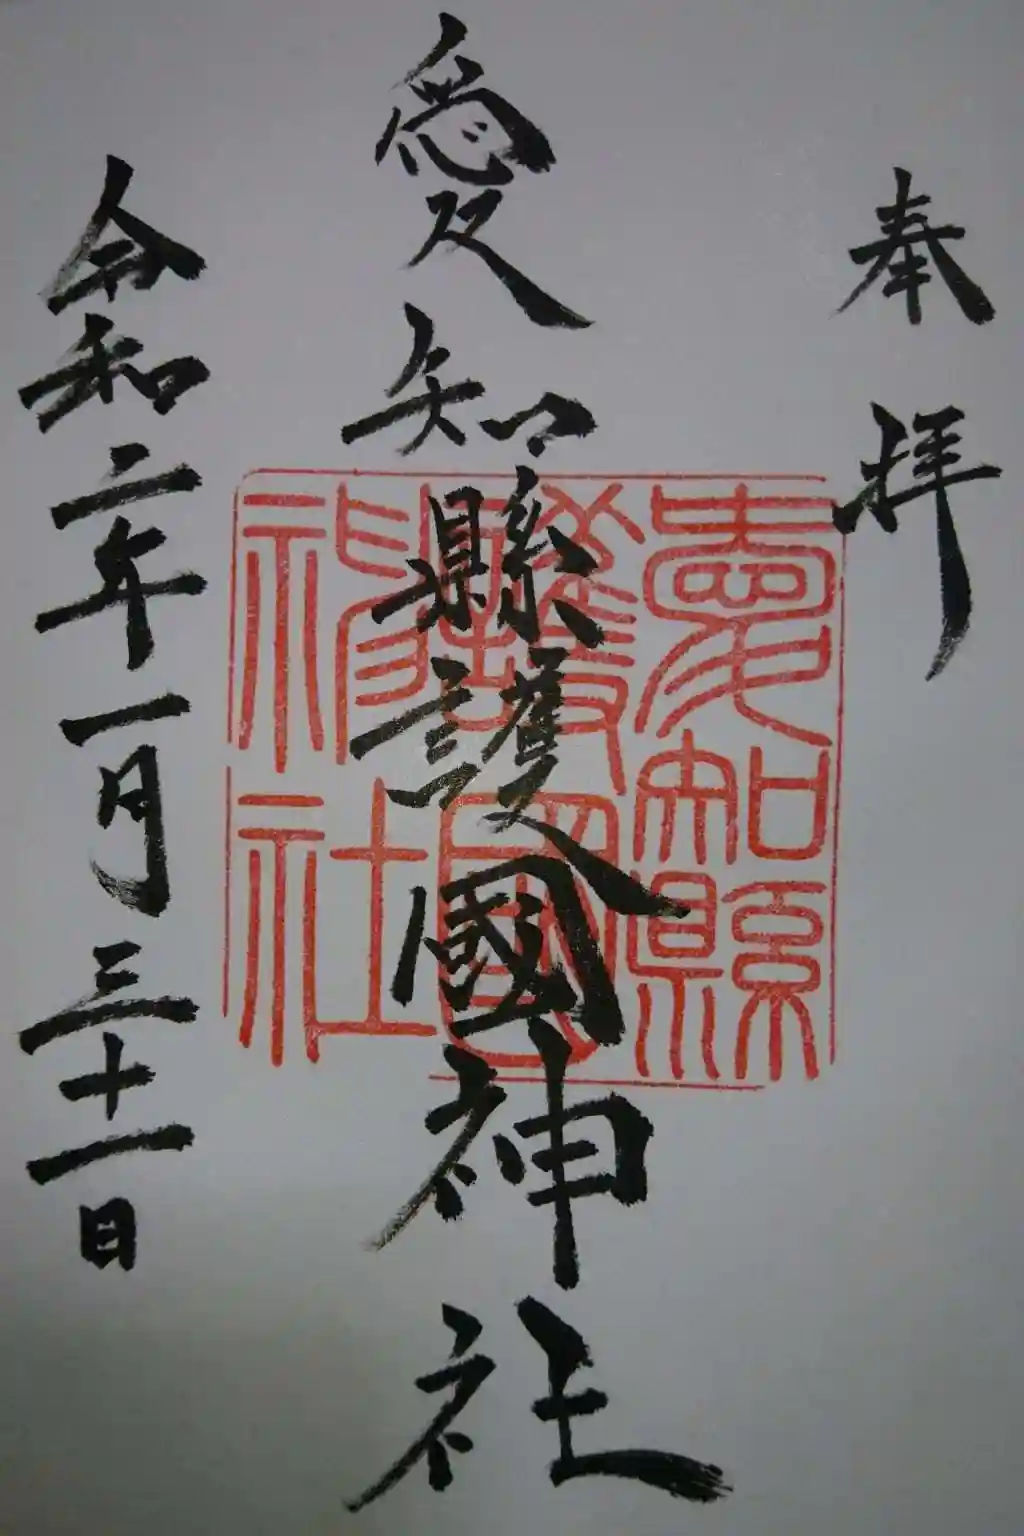 奉拝
愛知縣護國神社
愛知縣
護國
神社
令和二年一月三十一日